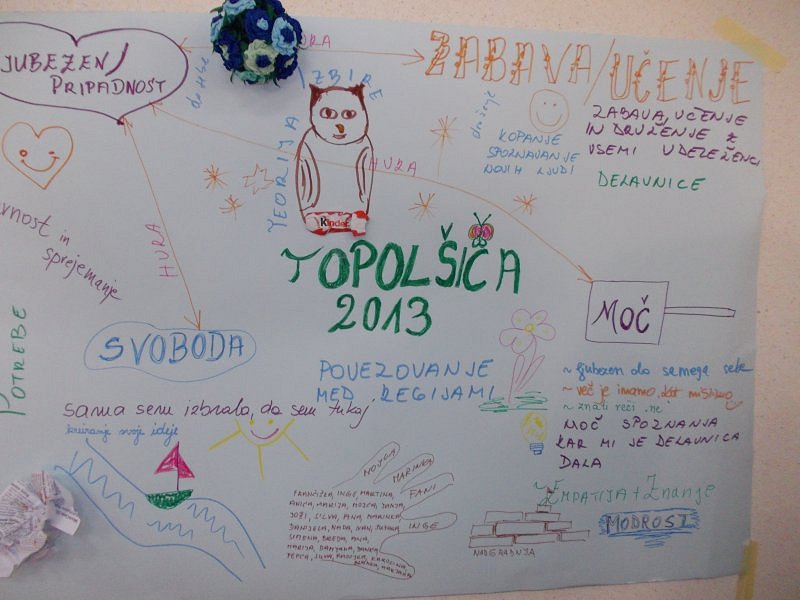 LJUBEZEN/
PRIPADNOST
HURA
ZABAVA/UČENJE
TEORIJA IZBIRE
druženje
KOPANJE
SPOZNAVANJE
NOVIH LJUDI
ZABAVA, UČENJE
IN DRUŽENJE Z
VSEMI UDELEŽENCI
DELAVNICE
HURA
kinder
in
sprejemanje
HURA
TOPOLŠICA
2013
MOČ
SVOBODA
POTREBE
POVEZOVANJE
MED REGIJAMI
~ ljubezen do samega sebe
~ več je imamo, kot mislimo
~ znati reči ne
MOČ SPOZNANJA
KAR MI JE DELAVNICA
DALA
sama sem izbrala, da sem tukaj
kreiranje svoje ideje
MOJCA
MARINKA
FANI
INGE
FRANČIŠKA, INGE, MARTINA,
ANICA, MARIJA, MOJCA, DANJA,
JOŽI, SILVA, ANA, MARINKA
DANIJELA, NADA, IVAN,
BREDA, ANA,
MARIJA, DAMJANA, DANICA
PEPCA, SILVA, KAROLINA
~ EMPATIJA + ZNANJE
MODROST
NADGRADNJA